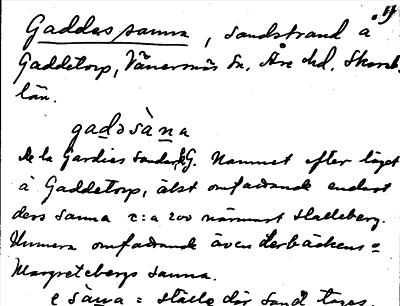 Gaddesanna, sandstrand å
Gaddetorp, Vänersnäs sn, Åse hd, Skarab.
län.
gadəsàna
De la Gardies Sanden, G. Namnet efter läget
å Gaddetorp, älst omfattande endast
dess sanna c:a 200 närmast Halleberg.
Numera omfattande även Lerbäckens=
Margretebergs sanna.
sàna = ställe där sand tages.